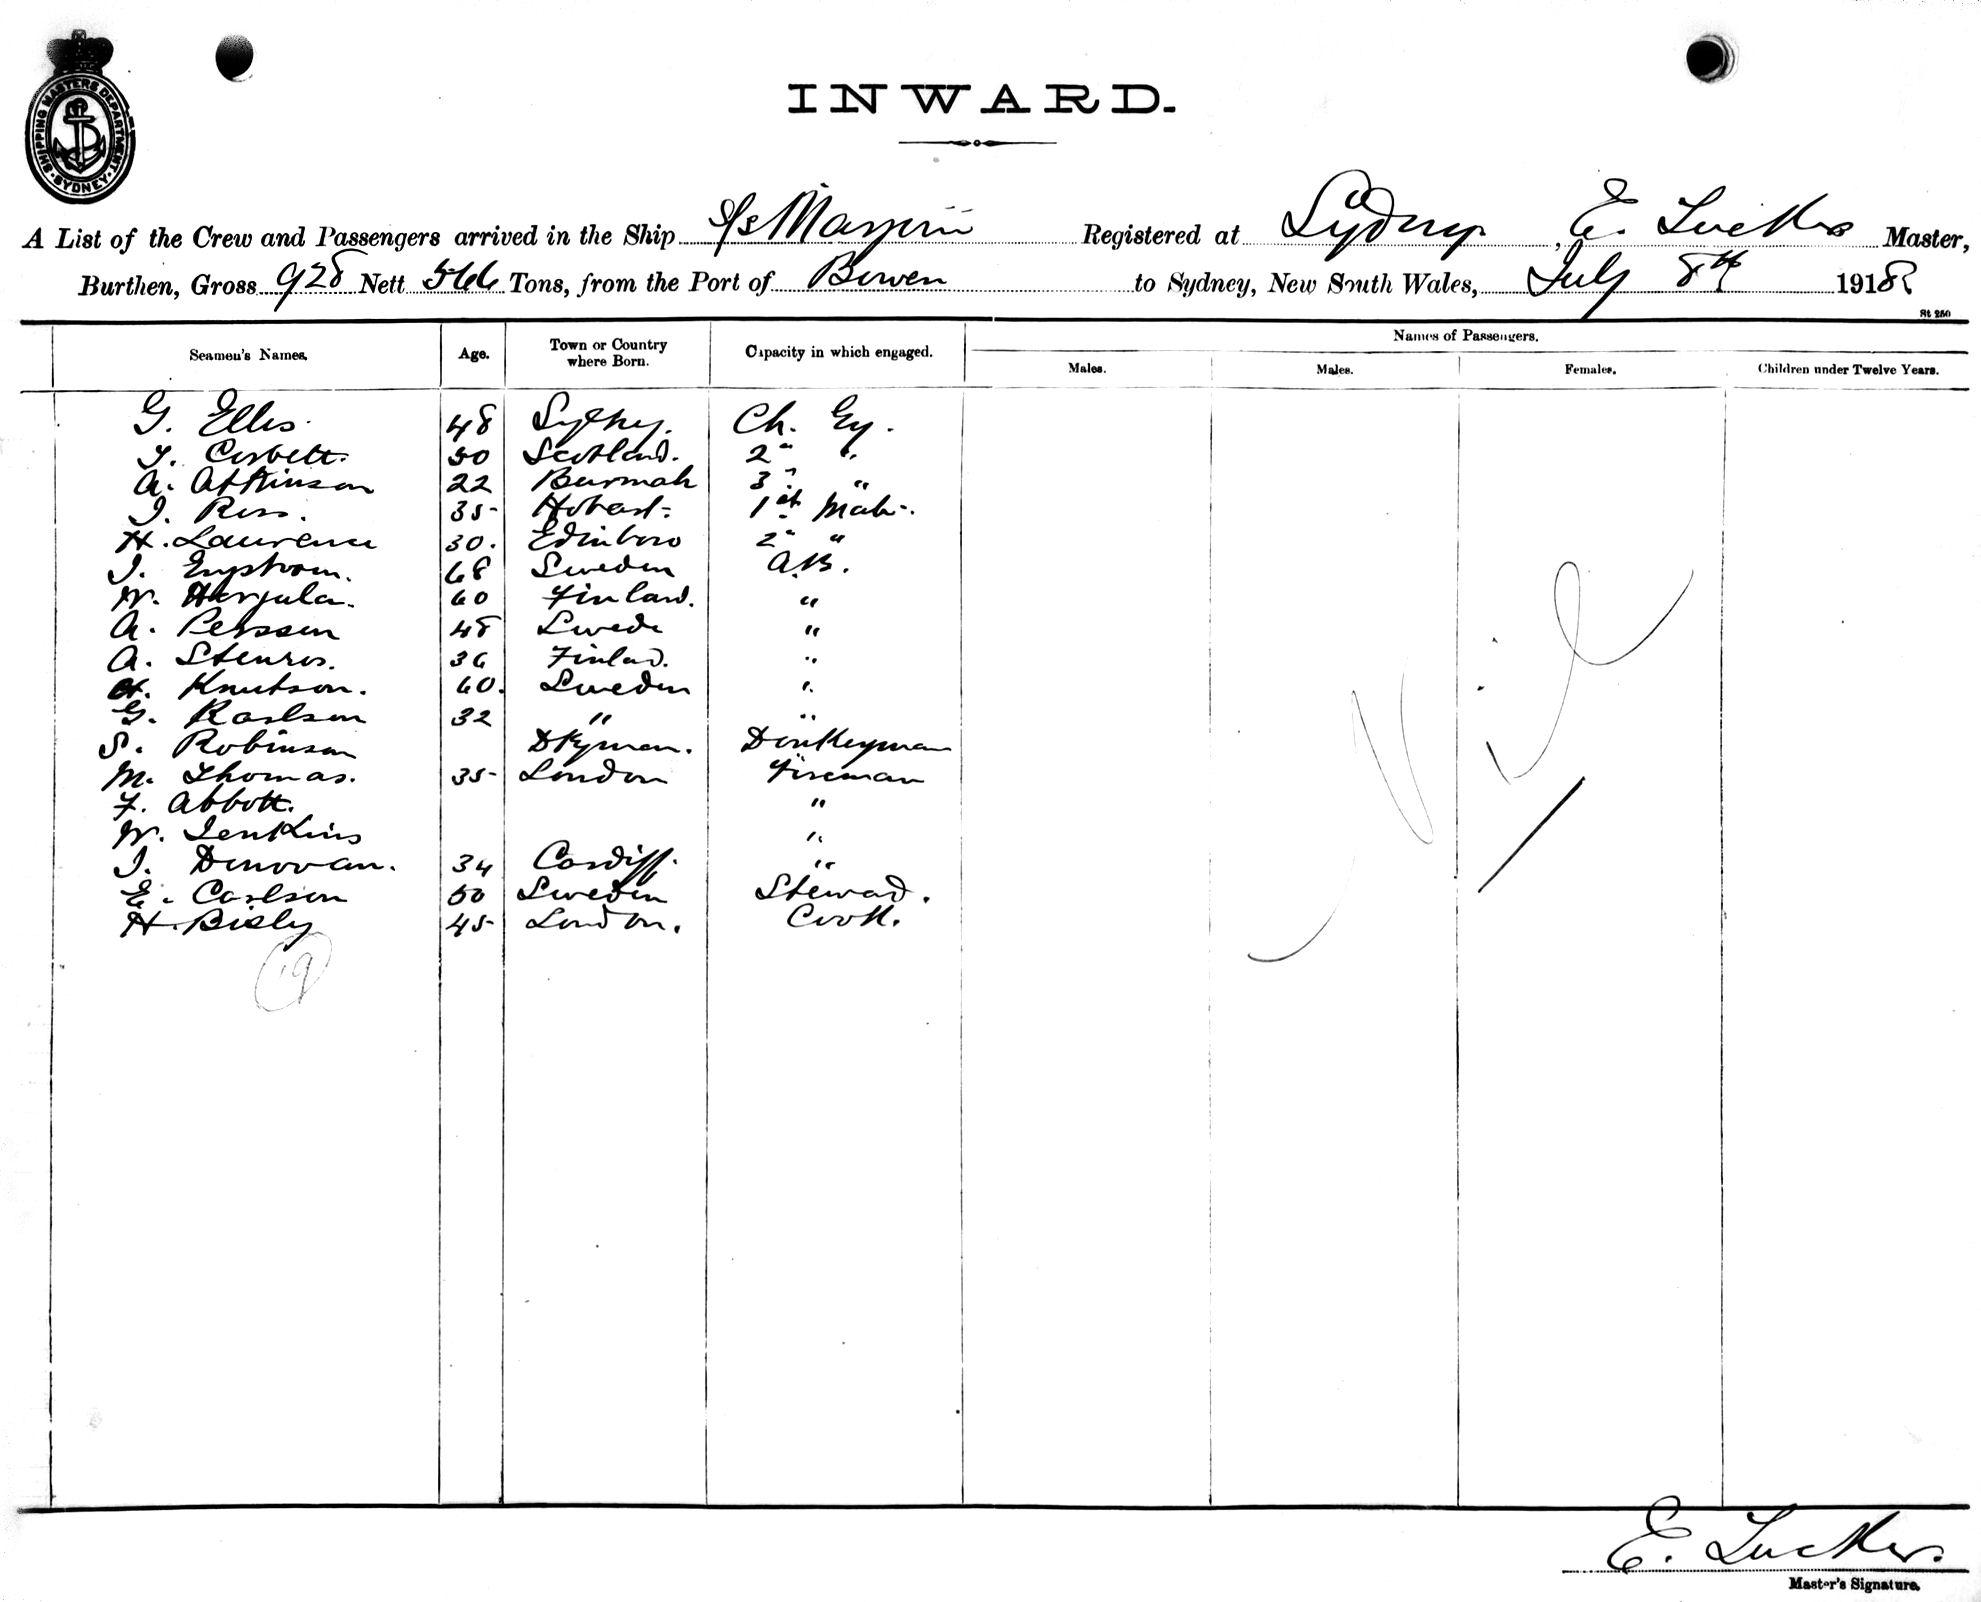 SHIPPING MASTERS DEPARTMENT
SYDNEY
INWARD.
A List of the Crew and Passengers arrived in the Ship S/s Registered at Sydney, E. Tucker Master,
Burthen, Gross 928 Nett 566 Tons, from the Port of Bowen to Sydney, New South Wales, July 8th 1918
St 250
Seamen's Names. Age. Town or Country where Born. Capacity in which engaged. Names of Passengers.
Males. Males. Females. Children under Twelve Years.
G. Ellis. 48 Sydney. Ch. Eg.
T. Corbett. 50 Scotland. 2" "
A. Atkinson 22 Burmah 3" "
J. Ross. 35 Hobart. 1st Mate.
H. Laurence 30. Edinboro 2" "
J. Engstrom. 68 Sweden A.B.
W. Harjula. 60 Finland. "
A. Perssen 48 Swede "
A. Stenros. 36 Finlad. "
H. Knutson. 60. Sweden "
G. Karlson 32 " "
S. Robinson DKyman. Donkeyman
M. Thomas. 35 London Fireman
F. Abbott. "
W. Jenkins "
J. Donovan. 34 Cardiff. "
E. Carlson 50 Sweden Steward.
H. Bisly 45 London. Cook.
19
Nil
E. Tucker.
Master's Signature.